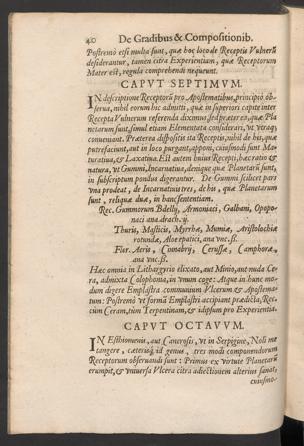 40 De Gradibus & Compositionib.
Postremò etsi multa sunt, quæ hoc loco de Receptis Vulnerũ
desiderantur, tamen citra Experientiam, quæ Receptorum
Mater est, regula comprehendi nequeunt.
CAPVT SEPTIMVM.
IN descriptione Receptorũ pro Apostematibus, principiò ob-
serua, nihil eorum hic admitti, quæ in superiori capite inter
Recepta Vulnerum referenda diximus, sed præter ea, quæ Pla
netarum sunt, simul etiam Elementata consideran, vt vtraq;
conueniant. Præterea dispositis ita Receptis, nihil de his, quæ
putrefaciunt, aut in loco purgant, apponi, cuiusmodi sunt Ma-
turatiua, & Laxatiua. Est autem huius Recepti, hæc ratio &
natura, vt Gummi, Incarnatiua, denique quæ Planetarũ sunt,
in subscriptum pondus digerantur. De Gummi scilicet pars
vna prodeat, de Incarnatiuis tres, de his, quæ Planetarum
sunt, reliquæ duæ, in hanc sententiam.
Rec. Gummorum Bdellij, Armoniaci, Galbani, Opopo-
naci ana. drach. ij.
Thuris, Masticis, Myrrhæ, Mumiæ, Aristolochiæ
rotundæ, Aloe epatici, ana vnc. ß.
Flor. Aeris, Cinnabrij, Cerussæ, Camphoræ,
ana vnc. ß.
Hæc omnia in Lithargyrio elixato, aut Minio, aut nuda Ce-
ra, admixta Colophonia, in vnum coge: Atque in hunc mo-
dum digere Emplastra communium Vlcerum & Apostema-
tum: Postremò vt formã Emplastri accipiant prædicta, Rec:
cum Ceram, tum Terpentinam, & id ipsum pro Experientia.
CAPVT OCTAVVM.
IN Esthiomenis, aut Cancrosis, vt in Serpigine, Noli me
tangere, cæterisq; id genus, tres modi componendorum
Receptorum obseruandi sunt: Primus ex virtute Planetarũ
erumpit, & vniuersa Vlcera citra adiectionem alterius sanat,
cuiusmo-